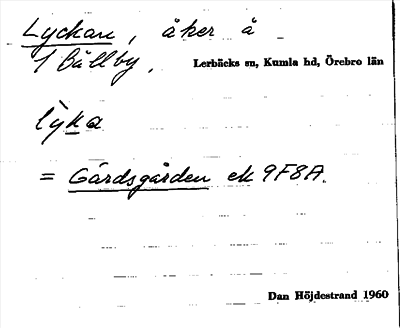 Lyckan, åker å
1 Bällby, Lerbäcks sn, Kumla hd, Örebro län
lyka
= Gårdsgården ek 9F8A.
Dan Höjdestrand 1960